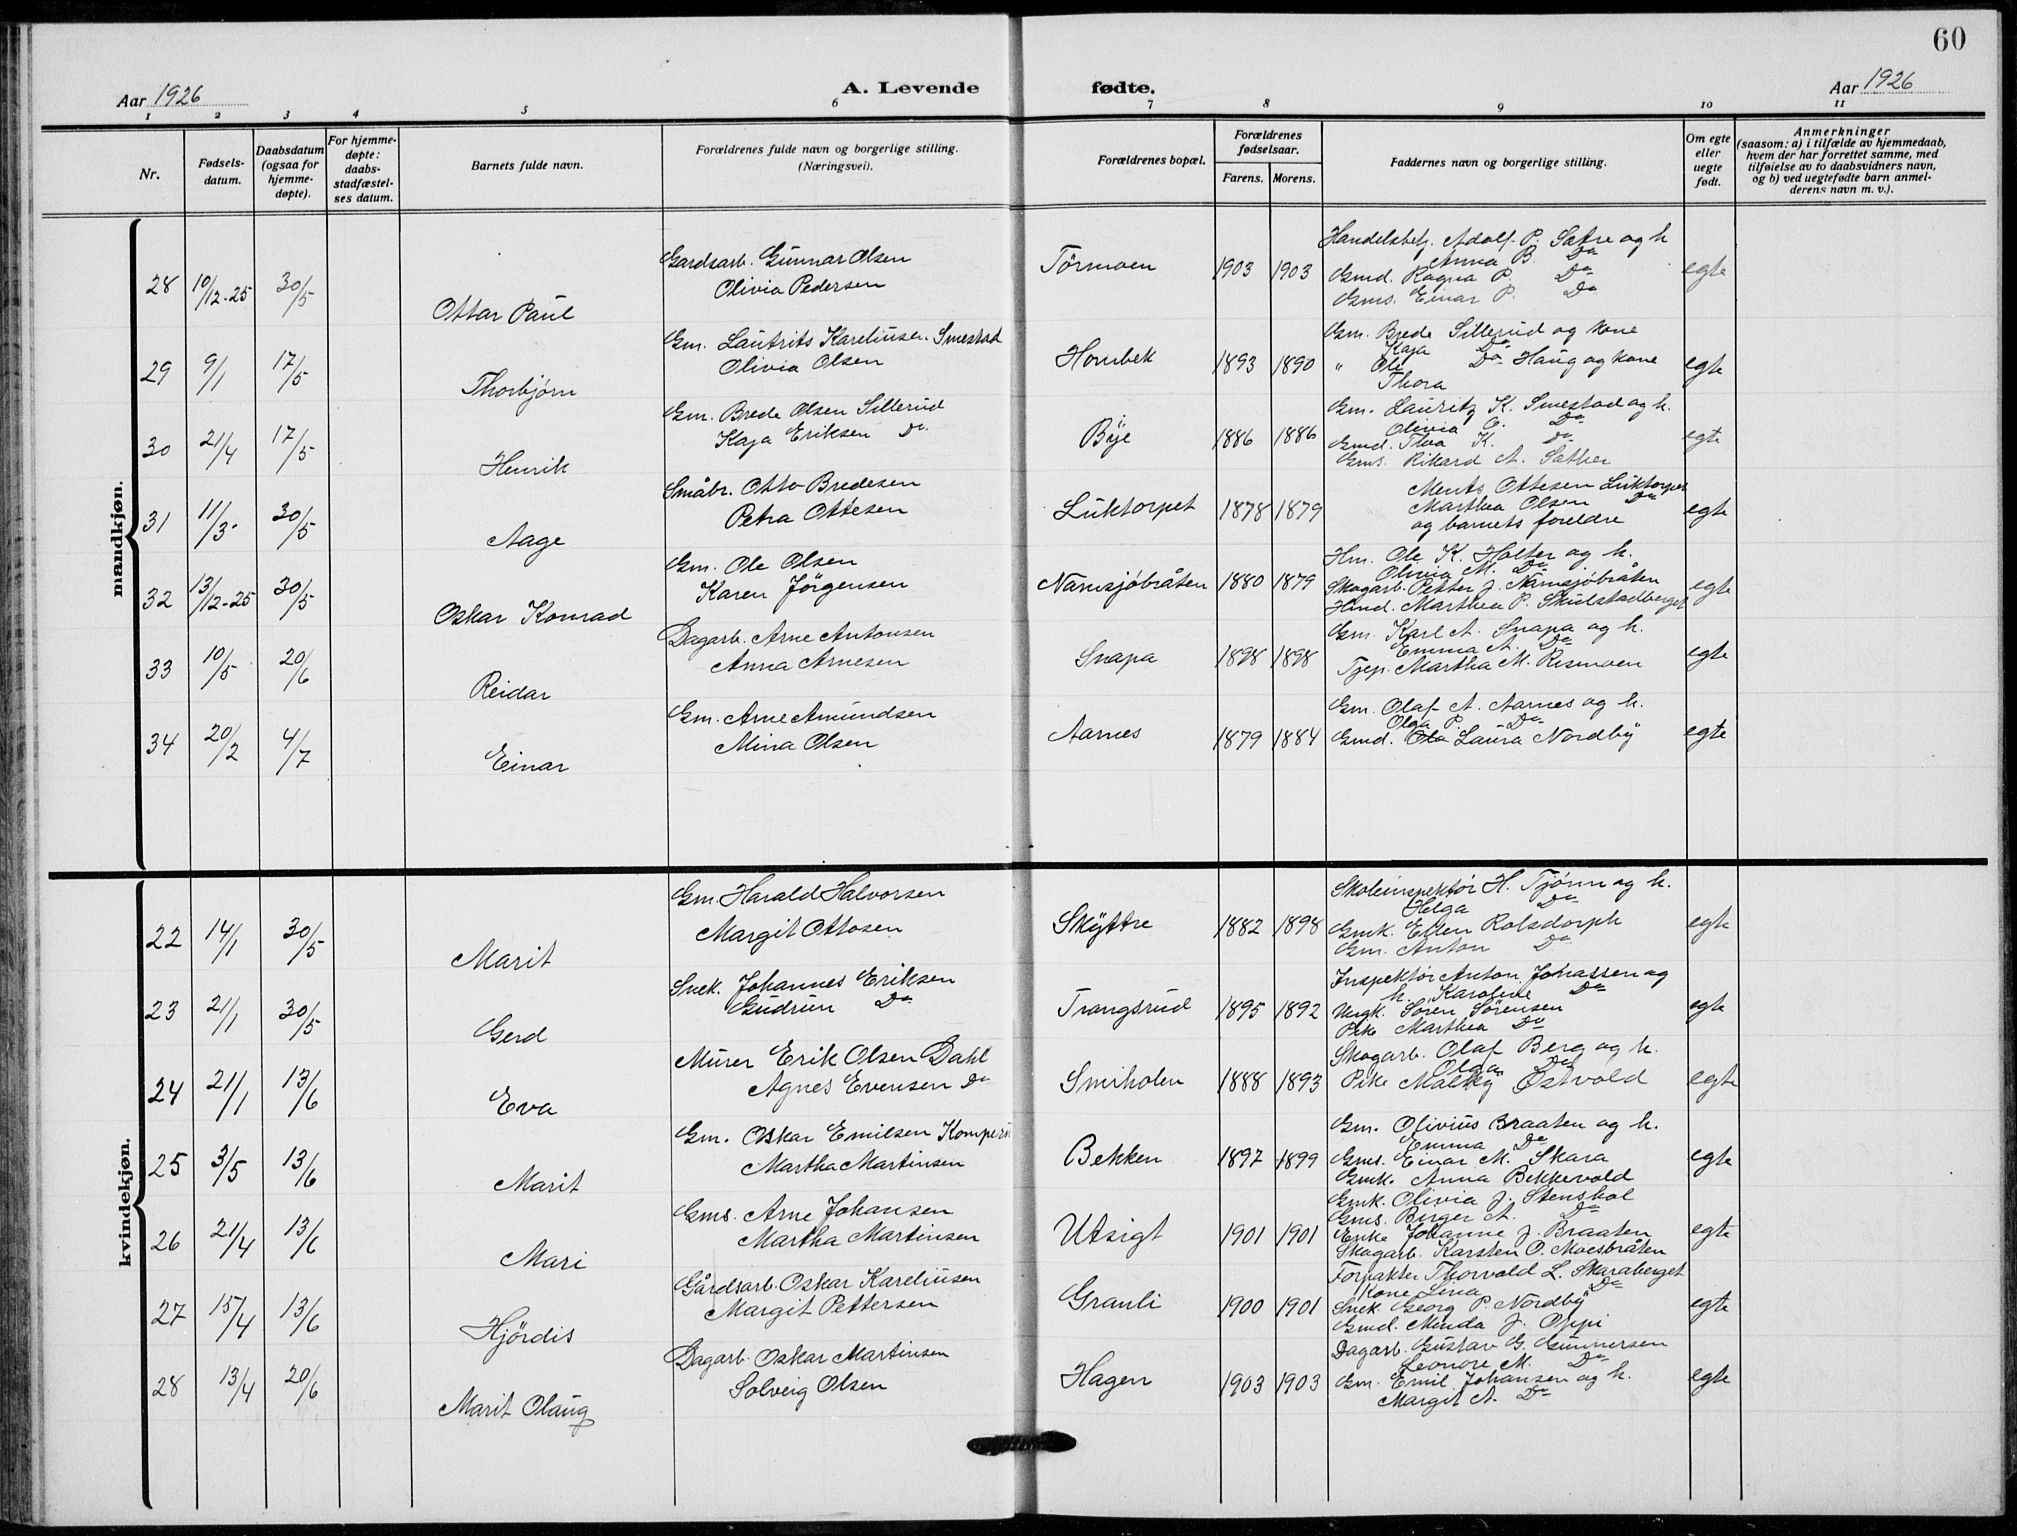 60
Aar 1926
A. Levende fødte.
Aar 1926
1 2 3 4 5 6 7 8 9 10 11
Nr.
Fødsels-
datum.
Daabsdatum
(ogsaa for
hjemme-
døpte).
For hjemme-
døpte:
daabs-
stadfæstel-
ses datum.
Barnets fulde navn.
Forældrenes fulde navn og borgerlige stilling.
(Næringsvei).
Forældrenes bopæl.
Forældrenes
fødselsaar.
Farens. Morens.
Faddernes navn og borgerlige stilling.
Om egte
eller
uegte
født.
Anmerkninger
(saasom: a) i tilfælde av hjemmedaab,
hvem der har forrettet samme, med
tilføielse av to daabsvidners navn,
og b) ved uegtefødte barn anmel-
derens navn m. v.).
mandkjøn.
28 10/12-25 30/5 Ottar Paul
Gardsarb. Gunnar Olsen
Olivia Pedersen
Törmoen 1903 1903
Handelsbetj. Adolf P. Sætre og h.
Anna B. Do
Gmd. Ragna P. Do
Gms. Einar P. Do
egte
29 9/1 17/5 Thorbjørn
Gm. Lautrits Kareliusen Smestad
Olivia Olsen
Hombek 1893 1890
Gm. Brede Sillerud og kone
Kaja Do
" Ole Do Haug og kone
Thora
egte
30 21/4 17/5 Henrik
Gm. Brede Olsen Sillerud
Kaja Eriksen Do.
Bye 1886 1886
Gm. Lauritz K. Smestad og h.
Olivia O. Do
Gmd. Thea K. Do
Gms. Rikard A. Sæther
egte
31 11/3- 30/5 Aage
Småbr. Otto Bredesen
Petra Ottesen
Luktorpet 1878 1879
Ments Ottesen Luktorpet
Marthea Olsen Do
og barnets foreldre
egte
32 13/12-25 30/5 Oskar Konrad
Gm. Ole Olsen
Karen Jörgensen
Namsjöbråten 1880 1879
Hm. Ole K. Holter og h.
Olivia M. Do
Skogarb. Petter J. Namsjöbråten
Hmd. Marthea P. Skulstadberget
egte
33 10/5 20/6 Reidar
Dagarb. Arne Antonsen
Anna Arnesen
Snapa 1898 1898
Gm. Karl A. Snapa og h.
Emma A. Do
Tjep. Martha M. Rismoen
egte
34 20/2 4/7 Einar
Gm. Arne Amundsen
Mina Olsen
Aarnes 1879 1884
Gm. Olaf A. Aarnes og h.
Olga P. Do
Gmd. Ola Laura Nordby
egte
kvindekjøn.
22 14/1 30/5 Marit
Gm. Harald Halvorsen
Margit Ottosen
Skyttre 1882 1898
Skoleinspektör H. Tjörnn og h.
Helga Do
Gmk. Ellen Rolsdorph
Gm. Anton Do
egte
23 21/1 30/5 Gerd
Snek. Johannes Eriksen
Gudrun Do
Trangsrud 1895 1892
Inspektör Anton Johassen og
h. Karoline Do
Ungk. Sören Sörensen
Pike Marthea Do
egte
24 21/1 13/6 Eva
Murer Erik Olsen Dahl
Agnes Evensen Do
Smiholen 1888 1893
Skogarb. Olaf Berg og h.
Olga Do
Pike Östvold
egte
25 3/5 13/6 Marit
Gm. Oskar Emilsen
Martha Martinsen
Bekken 1897 1899
Gm. Olivius Braaten og h.
Emma Do
Gms. Einar M. Skara
Gmk. Anna Bekkevold
egte
26 21/4 13/6 Mari
Gms. Arne Johansen
Martha Martinsen
Utsigt 1901 1901
Gmk. Olivia J. Stenshol
Gms. Birger A. Do
Enke Johanne J. Braaten
Skogarb. Karsten O. Moesbråten
egte
27 15/4 13/6 Hjördis
Gårdsarb. Oskar Kareliusen
Margit Pettersen
Granli 1900 1901
Forpakter Thorvald L. Skaraberget
Kone Lina Do
Snek. Georg P. Nordby
Gmd. Minda J. Oppi
egte
28 13/4 20/6 Marit Olaug
Dagarb. Oskar Martinsen
Solveig Olsen
Hagen 1903 1903
Dagarb. Gustav G. Gunnersen
Leonore M. Do
Gm. Emil Johansen og h.
Margit A. Do
egte